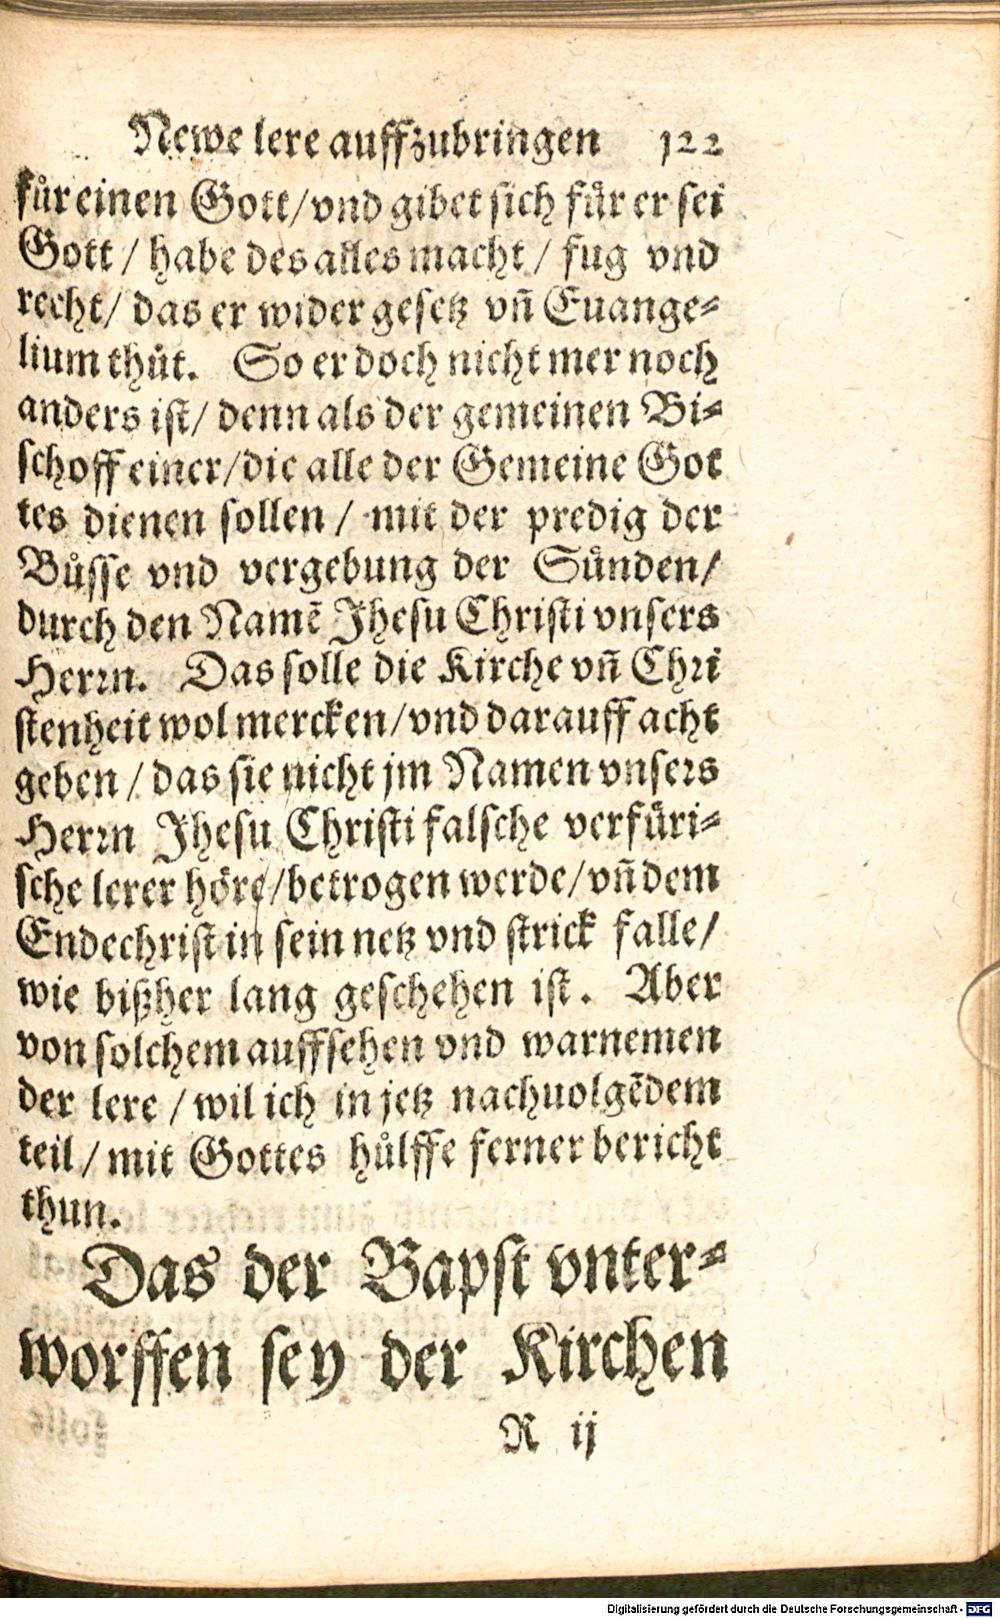 Newe lere auffzubringen 122
fůr einen Gott/vnd gibet sich für er sei
Gott / habe des alles macht / fug vnd
recht/ das er wider gesetz vñ Euange⸗
lium thüt. So er doch nicht mer noch
anders ist/ denn als der gemeinen Bi⸗
schoff einer/die alle der Gemeine Got
tes dienen sollen / mit der predig der
Bůsse vnd vergebung der Sünden/
durch den Namẽ Jhesu Christi vnsers
Herrn. Das solle die Kirche vñ Chri
stenheit wol mercken/vnd darauff acht
geben / das sie nicht jm Namen vnsers
Herrn Jhesu Christi falsche verfüri⸗
sche lerer höre/betrogen werde/vñ dem
Endechrist in sein netz vnd strick falle/
wie bißher lang geschehen ist. Aber
von solchem auffsehen vnd warnemen
der lere / wil ich in jetz nachuolgẽdem
teil / mit Gottes hůlffe ferner bericht
thun.
Das der Bapst vnter⸗
worffen sey der Kirchen
R ij
Digitalisierung gefördert durch die Deutsche Forschungsgemeinschaft - DFG